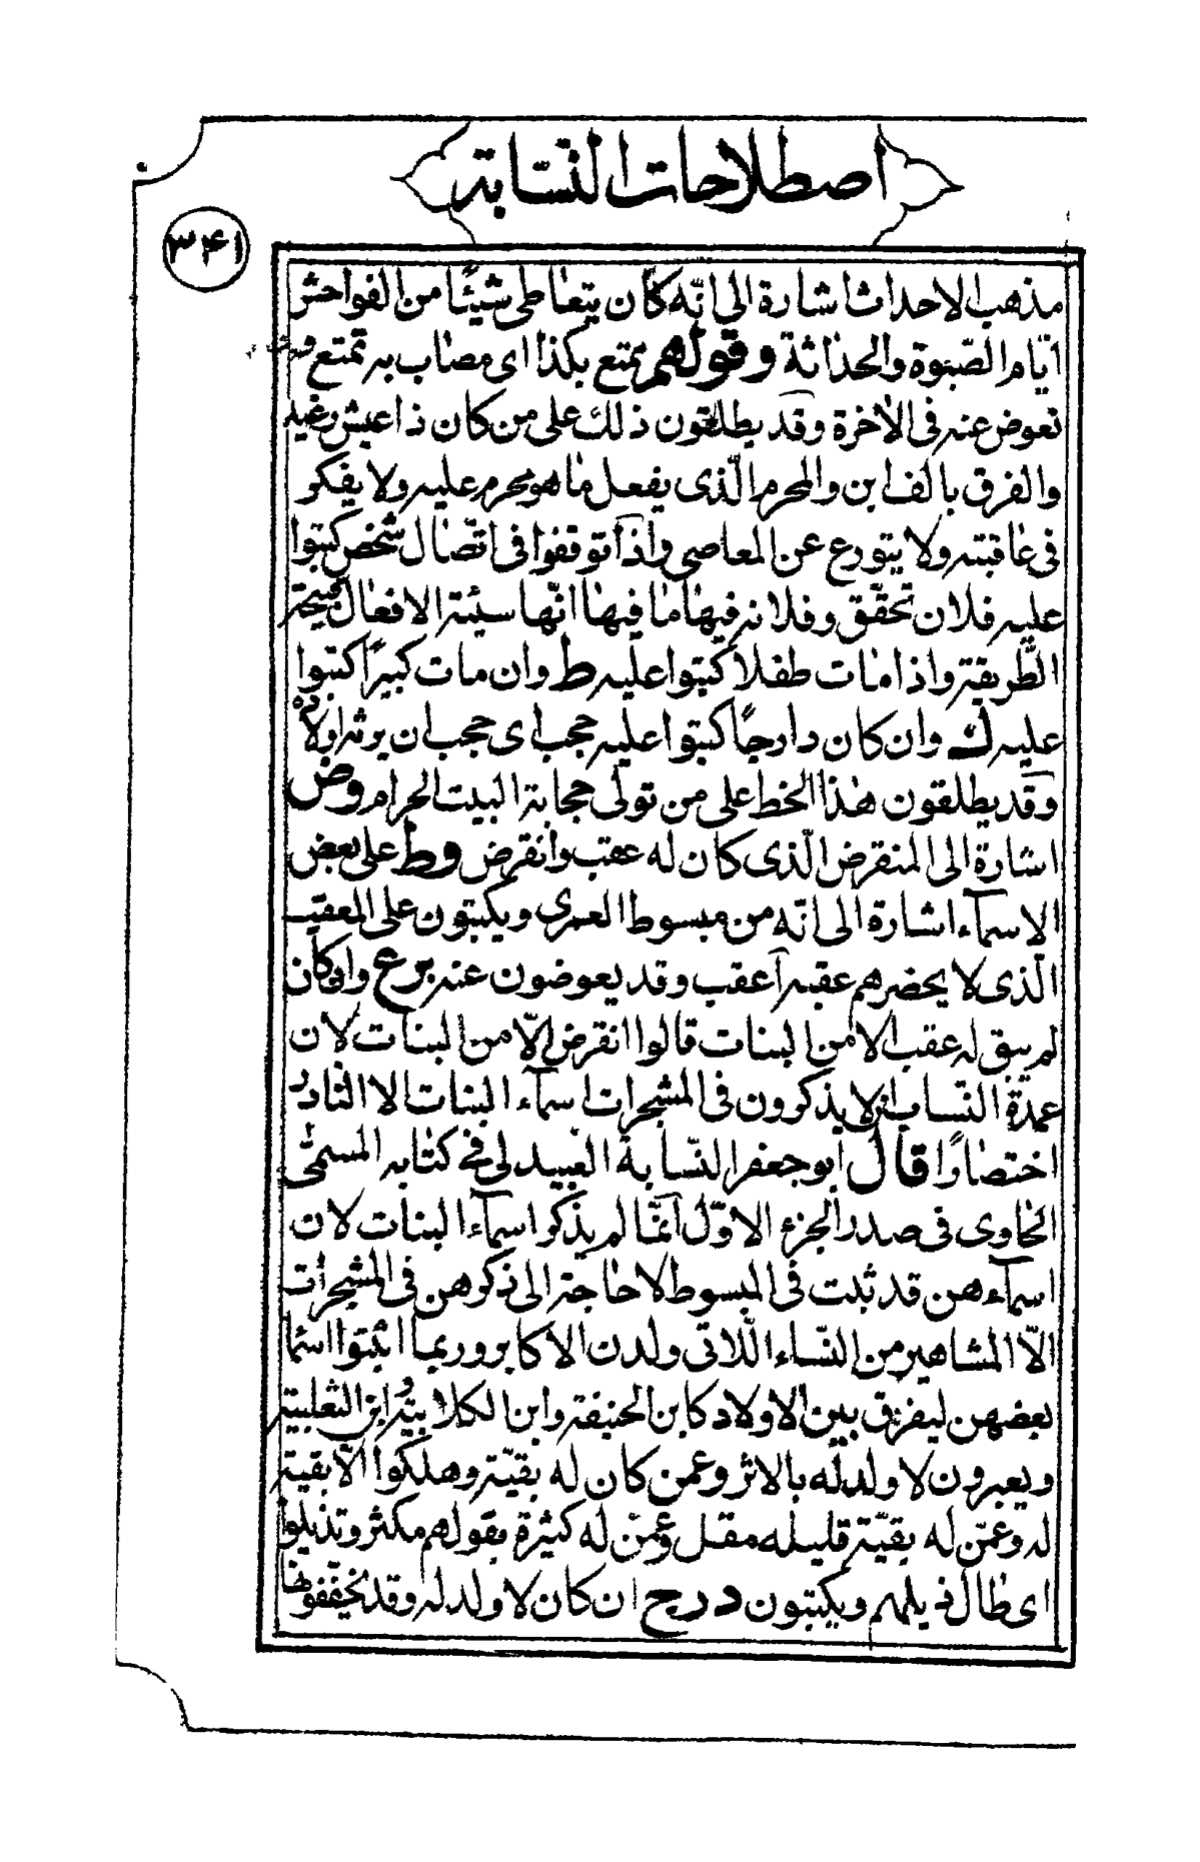 اصطلاحات النسّابة
۳۴۱
مذهب الاحداث اشارة الی انّه کان یتعاطی شیئًا من الفواحش
ایّام الصّبوة والحداثة وقولهم ممتع بکذا ای مصاب به تمتع
تعوض عنه فی الآخرة وقد یطلقون ذلک علی من کان ذا عیش رغید
والفرق بالف ابن والمحرم الّذی یفعل ما هو محرم علیه ولا یفکر
فی عاقبته ولا یتورع عن المعاصی واذا توقفوا فی اتّصال شخص کتبوا
علیه فلان تحقّق وفلانه فیها ما فیها انّها سیئة الافعال قبیحة
الطّریقة واذا مات طفلا کتبوا علیه ط وان مات کبیرًا کتبوا
علیه ک وان کان دارجًا کتبوا علیه حجب ای حجب ان یرثه اولاده
وقد یطلقون هذا الخط علی من تولی حجابة البیت الحرام وض
اشارة الی المنقرض الّذی کان له عقب وانقرض وط علی بعض
الاسمآء اشارة الی انّه من مبسوط العمری ویکتبون علی المعقب
الّذی لا یحضرهم عقبه اعقب وقد یعوضون عنه برع وان کان
لم یبق له عقب الا من البنات قالوا انقرض الّا من البنات لان
عمدة النّساب ان لا یذکرون فی المشجرات اسمآء البنات الا النادر
اختصارًا قال ابوجعفر النسّابة العبیدلی فی کتابه المسمّی
الحاوی فی صدر الجزء الاوّل انّما لم یذکو اسمآء البنات لان
اسمآءهن قد ثبت فی المبسوط لا حاجة الی ذکرهن فی المشجرات
الّا المشاهیر من النّساء اللّاتی ولدن الاکابر وربما اثبتوا اسما
بعضهن لیفرق بین الاولاد کابن الحنیفة وابن الکلابیّة وابن الثعلبیة
ویعبرون لا ولد له بالاثر وعمن کان له بقیّة وهلکوا الّا بقیة
له وعمّن له بقیّة قلیله مقل وعمّن له کثیرة بقولهم مکثر وتذیلوا
ای طال ذیلهم ویکتبون درج ان کان لا ولد له وقد یخففونها